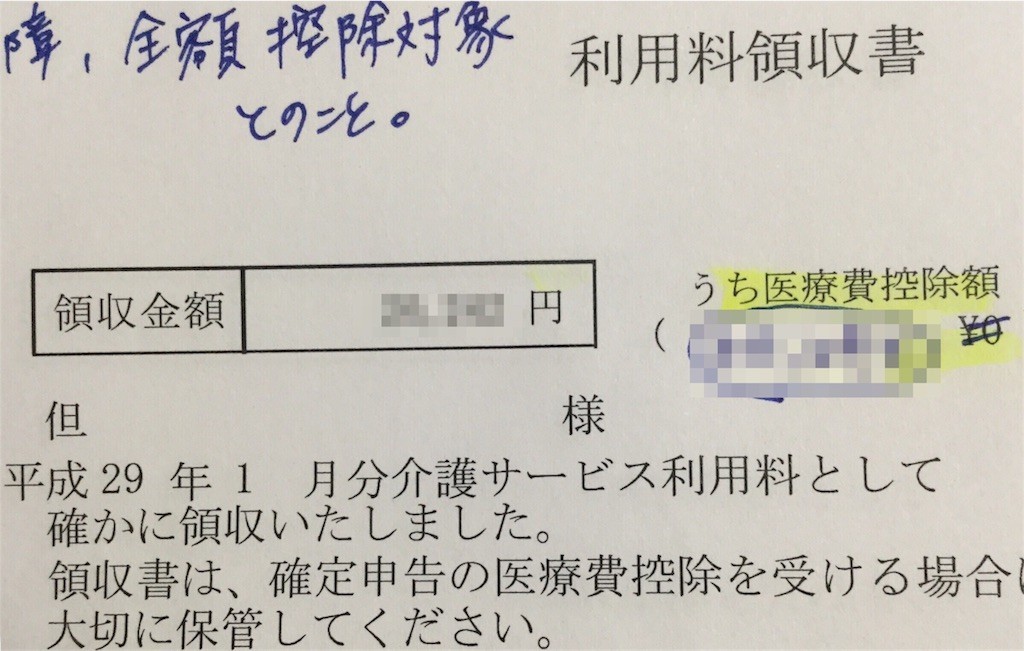 障, 全額控除対象
とのこと。
利用料領収書
領収金額 円
うち医療費控除額
( ¥0
但 様
平成29年1 月分介護サービス利用料として
確かに領収いたしました。
領収書は、確定申告の医療費控除を受ける場合
大切に保管してください。